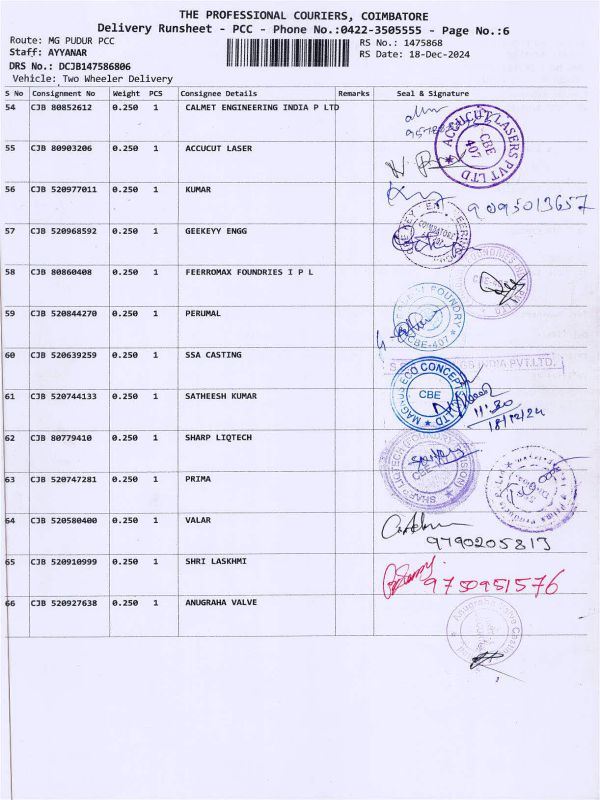 THE PROFESSIONAL COURIERS, COIMBATORE
Delivery Runsheet - PCC - Phone No.:0422-3505555 - Page No.:6
Route: MG PUDUR PCC RS No.: 1475868
Staff: AYYANAR RS Date: 18-Dec-2024
DRS No.: DCJB147586806
Vehicle: Two Wheeler Delivery
S No Consignment No Weight PCS Consignee Details Remarks Seal & Signature
54 CJB 80852612 0.250 1 CALMET ENGINEERING INDIA P LTD
ACCUCUT LASERS PVT LTD CBE 407
55 CJB 80903206 0.250 1 ACCUCUT LASER
56 CJB 520977011 0.250 1 KUMAR 9095013657
57 CJB 520968592 0.250 1 GEEKEYY ENGG
58 CJB 80860408 0.250 1 FEERROMAX FOUNDRIES I P L
59 CJB 520844270 0.250 1 PERUMAL
FOUNDRY CBE-407
60 CJB 520639259 0.250 1 SSA CASTING
INDIA PVT.LTD.
61 CJB 520744133 0.250 1 SATHEESH KUMAR
MAGNUS ECO CONCEPT LTD CBE
11:20
18/12/24
62 CJB 80779410 0.250 1 SHARP LIQTECH
SHARP LIQTECH (FOUNDRY DIVISION)
63 CJB 520747281 0.250 1 PRIMA
64 CJB 520580400 0.250 1 VALAR
9790205813
65 CJB 520910999 0.250 1 SHRI LASKHMI 9750951576
66 CJB 520927638 0.250 1 ANUGRAHA VALVE
Anugraha Valve Castings